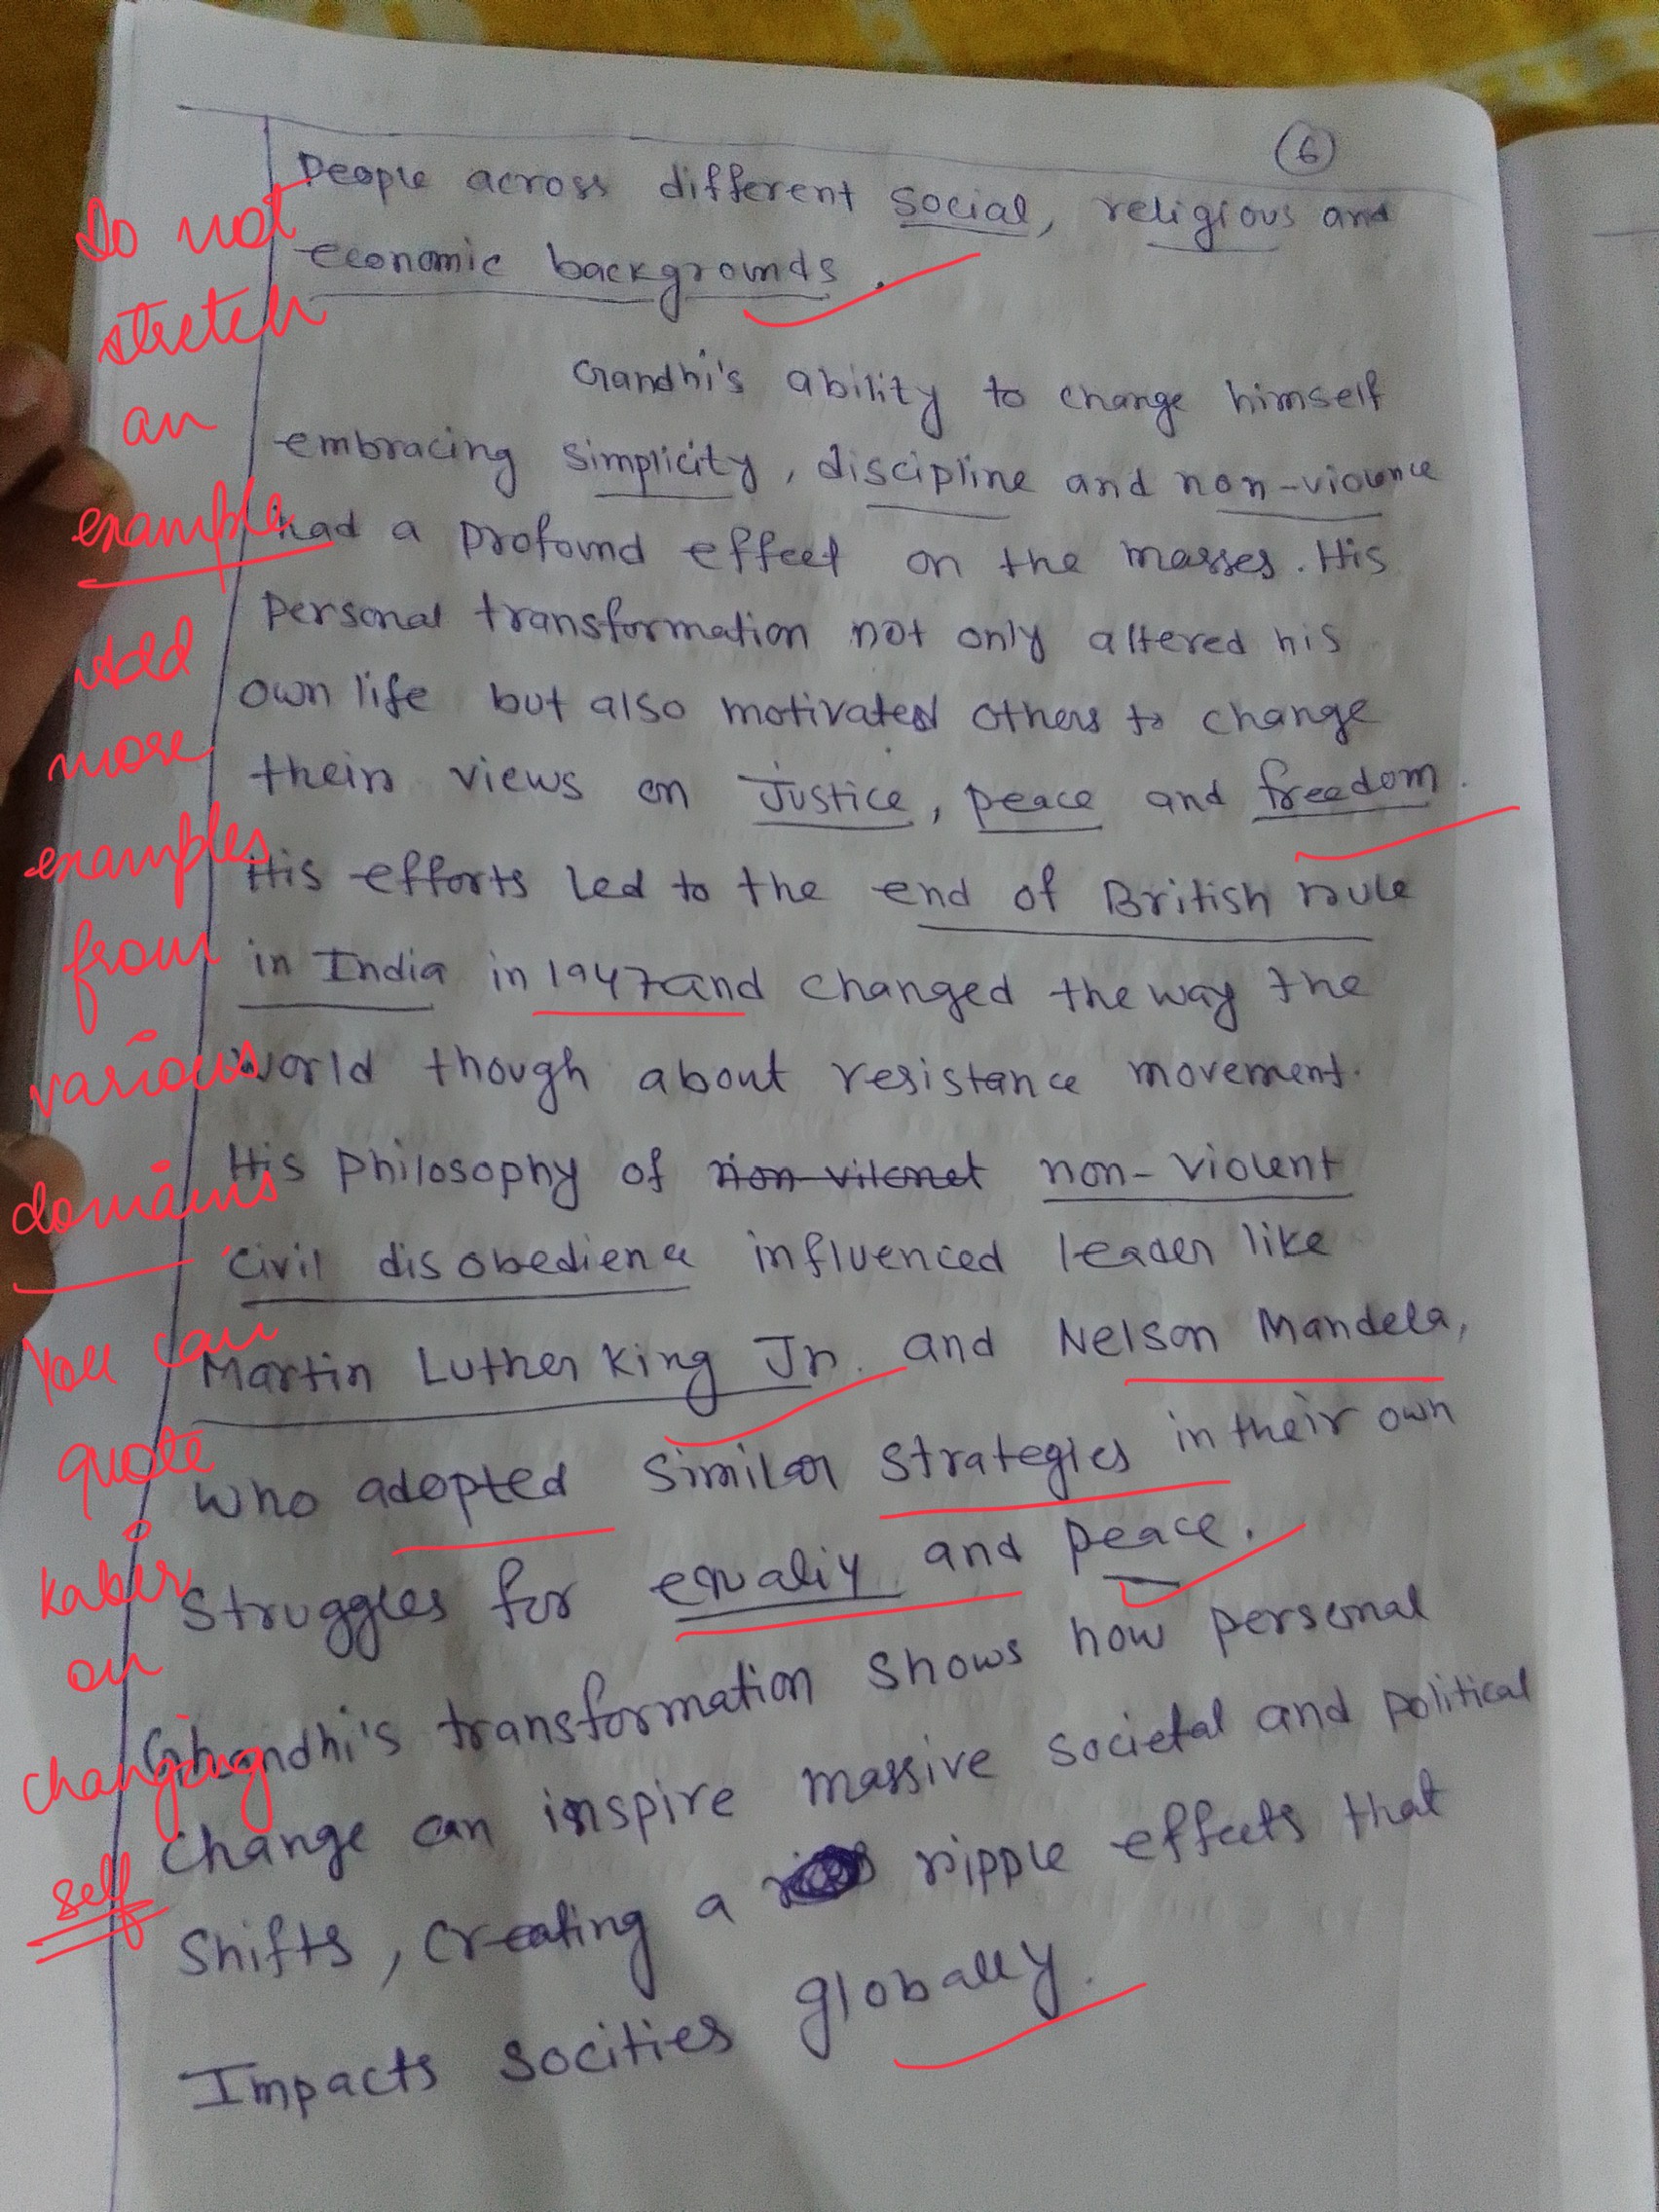 6
People across different social, religious and
economic backgrounds.
Gandhi's ability to change himself
embracing simplicity, discipline and non-violence
had a profound effect on the masses. His
personal transformation not only altered his
own life but also motivated others to change
their views on Justice, peace and freedom.
His efforts led to the end of British rule
in India in 1947 and changed the way the
world though about resistance movement.
His philosophy of non-violent
civil disobedience influenced leader like
Martin Luther King Jr. and Nelson Mandela,
who adopted similar strategies in their own
struggles for equaliy and peace.
Gandhi's transformation shows how personal
change can inspire massive societal and political
shifts, creating a ripple effects that
Impacts socities globally.
Do not
stretch
an
example
Add
more
examples
from
various
domains
You can
quote
Kabir
on
changing
self